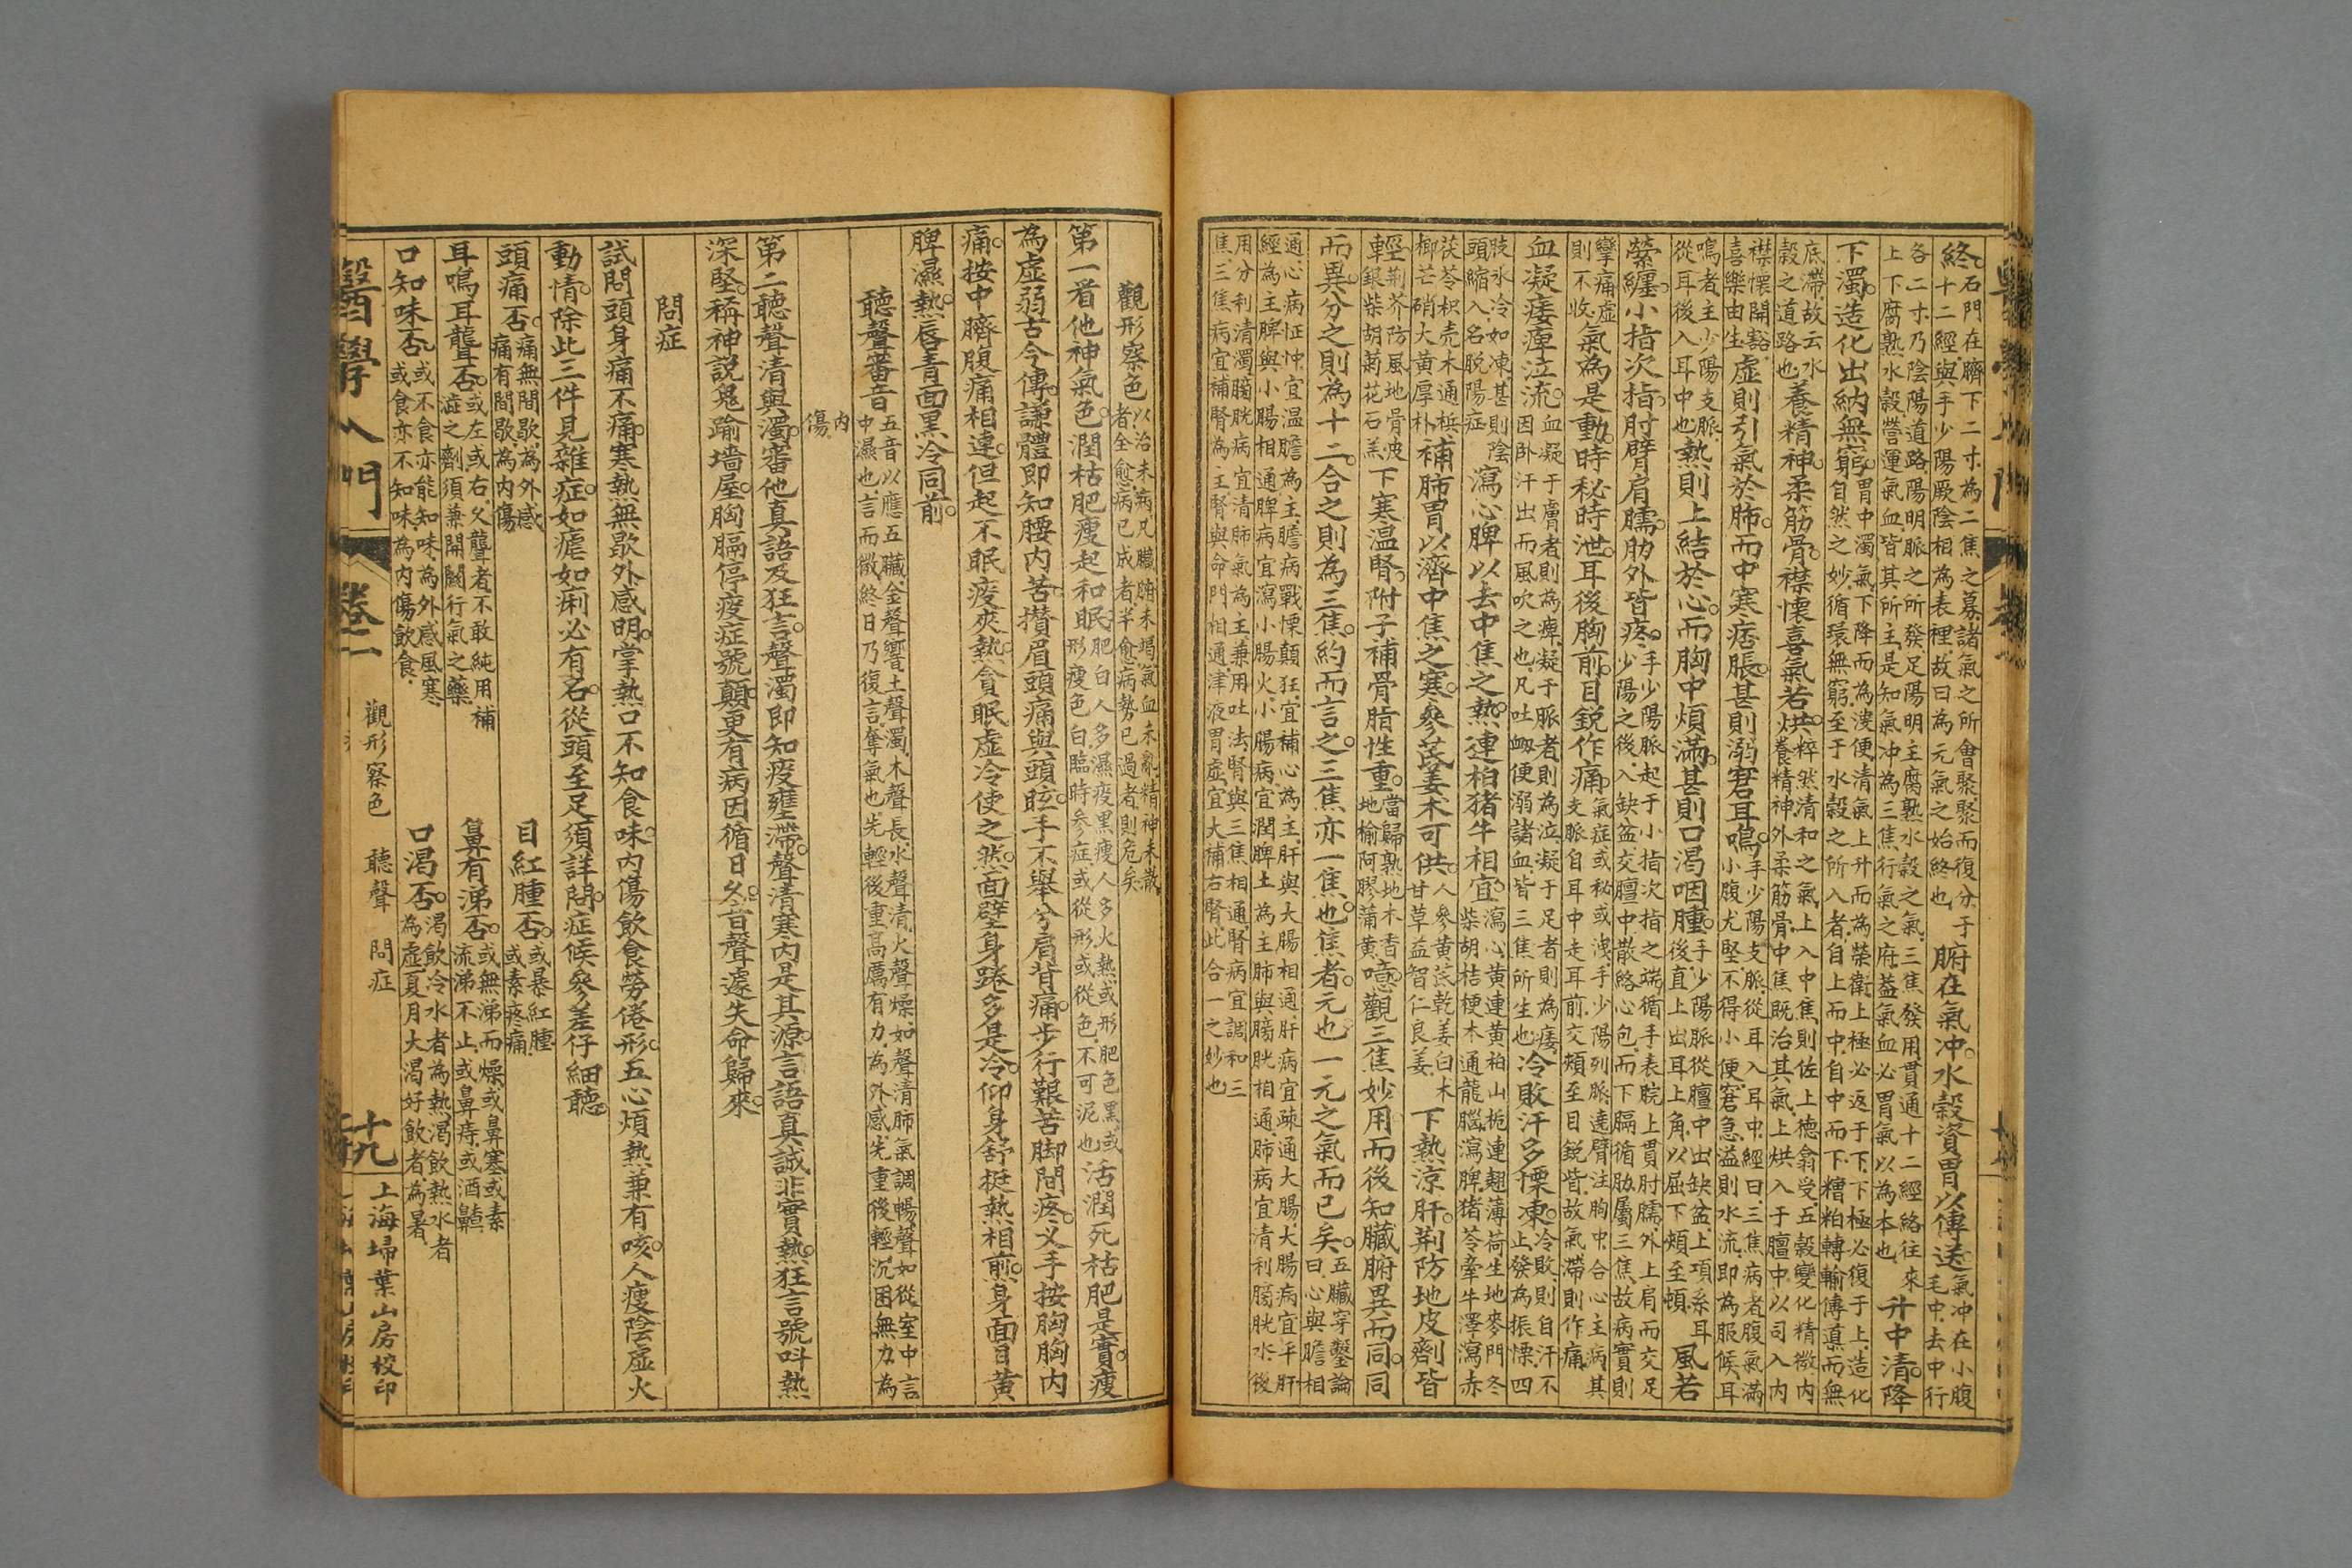 終。石門在臍下二寸為二焦之募諸氣之所會聚聚而復分于
十二經與手少陽厥陰相為表裡故曰為元氣之始終也腑在氣冲。水穀資胃以傳送氣冲在小腹毛中去中行
各二寸乃陰陽道路陽明脈之所發足陽明主腐熟水穀之氣三焦發用貫通十二經絡往來上下腐熟水穀營運氣血皆其所主是知氣冲為三焦行氣之府蓋氣血必胃氣以為本也升中清降
下濁。造化出納無窮。胃中濁氣下降而為溲便清氣上升而為榮衛上極必返于下下極必復于上造化自然之妙循環無窮至于水穀之所入者自上而中自中而下糟粕轉輸傳道而無
底滯故云水穀之道路也養精神。柔筋骨。襟懷喜氣若烘。粹然清和之氣上入中焦則佐上德翁受五穀變化精微內養精神外柔筋骨中焦既治其氣上烘入于膻中以司入內
襟懷開豁喜樂由生虛則引氣於肺。而中寒痞脹。甚則溺窘耳鳴。手少陽支脈從耳入耳中經曰三焦病者腹氣滿小腹尤堅不得小便窘急溢則水流即為服候耳
鳴者主少陽支脈從耳後入耳中也熱則上結於心。而胸中煩滿。甚則口渴咽腫。手少陽脈從膻中出缺盆上項系耳後直上出耳上角以屈下頰至䪼風若
縈纏。小指次指。肘臂肩臑。肋外皆疼。手少陽脈起于小指次指之端循手表腕上貫肘臑外上肩而交足少陽之後入缺盆交膻中散絡心包而下膈循肋屬三焦故病實則
攣痛虛則不收氣為是動。時秘時泄。耳後胸前。目銳作痛。氣症或秘或洩手少陽列脈遶臂注胸中合心主病其支脈自耳中走耳前交頰至目銳眥故氣滯則作痛
血凝痿痺泣流。血凝于膚者則為痺凝于脈者則為泣凝于足者則為痿因卧汗出而風吹之也凡吐衂便溺諸血皆三焦所生也冷敗汗多慄凍。冷敗則自汗不止發為振慄四
肢氷冷如凍甚則陰頭縮入名脫陽症瀉心脾以去中焦之熱。連柏猪牛相宜。瀉心黃連黃柏山梔連翹薄荷生地麥門冬柴胡桔梗木通龍腦瀉脾猪苓牽牛澤瀉赤
茯苓枳壳木通梹榔芒硝大黃厚朴補肺胃以濟中焦之寒。參芪姜朮可供。人參黃芪乾姜白朮甘草益智仁良姜下熱涼肝。荊防地皮劑皆
輕。荊芥防風地骨皮銀柴胡菊花石羔下寒溫腎。附子補骨脂性重。當歸熟地木香地榆阿膠蒲黃噫。觀三焦妙用而後知臟腑異而同。同
而異。分之則為十二。合之則為三焦。約而言之。三焦亦一焦也。焦者。元也。一元之氣而已矣。五臟穿鑿論曰心與膽相
通心病怔忡宜溫膽為主膽病戰慄顛狂宜補心為主肝與大腸相通肝病宜疎通大腸大腸病宜平肝
經為主脾與小腸相通脾病宜瀉小腸火小腸病宜潤脾土為主肺與膀胱相通肺病宜清利膀胱水後
用分利清濁膀胱病宜清肺氣為主兼用吐法腎與三焦相通腎病宜調和三
焦三焦病宜補腎為主腎與命門相通津液胃虛宜大補右腎此合一之妙也
觀形察色以治未病凡臟腑未竭氣血未亂精神未散者全愈病已成者半愈病勢已過者則危矣
第一看他神氣色。潤枯肥瘦起和眠肥白人多濕疫黑瘦人多火熱或形肥色黑或形瘦色白臨時參症或從形或從色不可泥也活潤死枯肥是實。瘦
為虛弱古今傳。謙體即知腰內苦。攢眉頭痛與頭眩。手不舉兮肩背痛。步行艱苦脚間疼。叉手按胸胸內
痛。按中臍腹痛相連。但起不眠痰夾熱。貪眠虛冷使之然。面壁身踡多是冷。仰身舒挺熱相煎。身面目黃
脾濕熱。唇青面黑冷同前。
聽聲審音五音以應五臟金聲響土聲濁木聲長水聲清火聲燥如聲清肺氣調暢聲如從室中言中濕也言而微終日乃復言奪氣也先輕後重高厲有力為外感先重後輕沉困無力為
內傷
第二聽聲清與濁。審他真語及狂言。聲濁即知痰壅滯。聲清寒內是其源。言語真誠非實熱。狂言號呌熱
深堅。稱神說鬼踰墻屋。胸膈停痰症號顛。更有病因循日久。音聲遽失命歸來。
問症
試問頭身痛不痛。寒熱無歇外感明。掌熱口不知食味。內傷飲食勞倦形。五心煩熱兼有咳。人瘦陰虛火
動情。除此三件見雜症。如瘧如痢必有名。從頭至足須詳問。症候參差仔細聽。
頭痛否。痛無間歇為外感痛有間歇為內傷　目紅腫否。或暴紅腫或素疼痛
耳鳴耳聾否。或左或右久聾者不敢純用補澁之劑須兼開關行氣之藥　鼻有涕否。或無涕而燥或鼻塞或素流涕不止或鼻痔或酒齇
口知味否。或不食亦能知味為外感風寒或食亦不知味為內傷飲食　口渴否。渴飲冷水者為熱渴飲熱水者為虛夏月大渴好飲者為暑
醫學入門　卷一　觀形察色　聽聲　問症　十九　上海埽葉山房校印